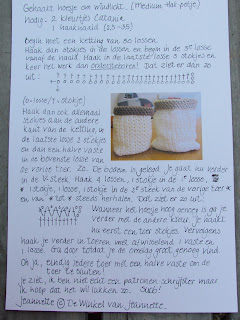 Gehaakt hoesje om windlicht. (Medium Hak potje)
Nodig: 2 kleurtjes Catania
1 haaknaald (2,5-3,5)
Begin met een ketting van 30 lossen.
Haak dan stokjes in de lossen en begin in de 3e losse
vanaf de naald. Haak in de laatste losse 3 stokjes
en keer het werk dan ondersteboven! Dat ziet er dan zo
uit:
(0=losse / T= stokje)
Haak dan ook allemaal
stokjes aan de andere
kant van de ketting, in
de laatste losse 2 stokjes
en dan een halve vaste
in de bovenste losse van
de vorige toer. Zo. De bodem is gelegd. Je gaat nu verder
in de V.steek. Haak 4 lossen, 1 stokje in de 1e losse,
* 1 stokje, 1 losse, 1 stokje in de 2e steek van de vorige toer *
en van * tot * steeds herhalen. Dat ziet er zo uit:
Wanneer het hoesje hoog genoeg is ga je
verder met de andere kleur. Je maakt
nu eerst een toer stokjes. Vervolgens
haak je verder in toeren met afwisselend 1 vaste en
1 losse. Ga door totdat je de omslag groot genoeg vind.
Oh ja, eindig iedere toer met een halve vaste om de
toer te sluiten!
Je ziet, ik ben niet echt een patronen schrijfster maar
ik hoop dat het wil lukken zo. Oké?
Jeannette © De Winkel van Jeannette.